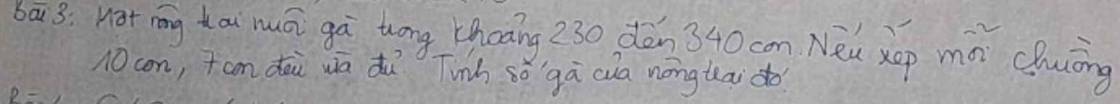 Bài 3: Một nông trại nuôi gà trong khoảng 230 đến 340 con. Nếu xếp mỗi chuồng
10 con, 7 con đều vừa đủ Tính số gà của nông trại đó.